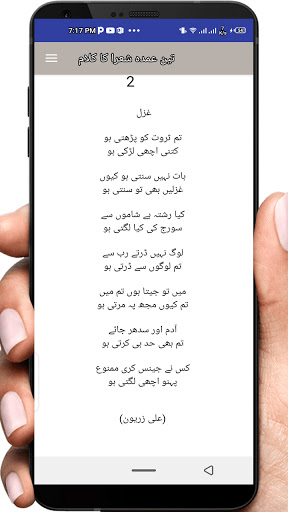 7:17 PM
تین عمدہ شعرا کا کلام
2
غزل
تم ثروت کو پڑھتی ہو
کتنی اچھی لڑکی ہو
بات نہیں سنتی ہو کیوں
غزلیں بھی تو سنتی ہو
کیا رشتہ ہے شاموں سے
سورج کی کیا لگتی ہو
لوگ نہیں ڈرتے رب سے
تم لوگوں سے ڈرتی ہو
میں تو جیتا ہوں تم میں
تم کیوں مجھ پہ مرتی ہو
آدم اور سدھر جائے
تم بھی حد ہی کرتی ہو
کس نے جینس کری ممنوع
پہنو اچھی لگتی ہو
(علی زریون)